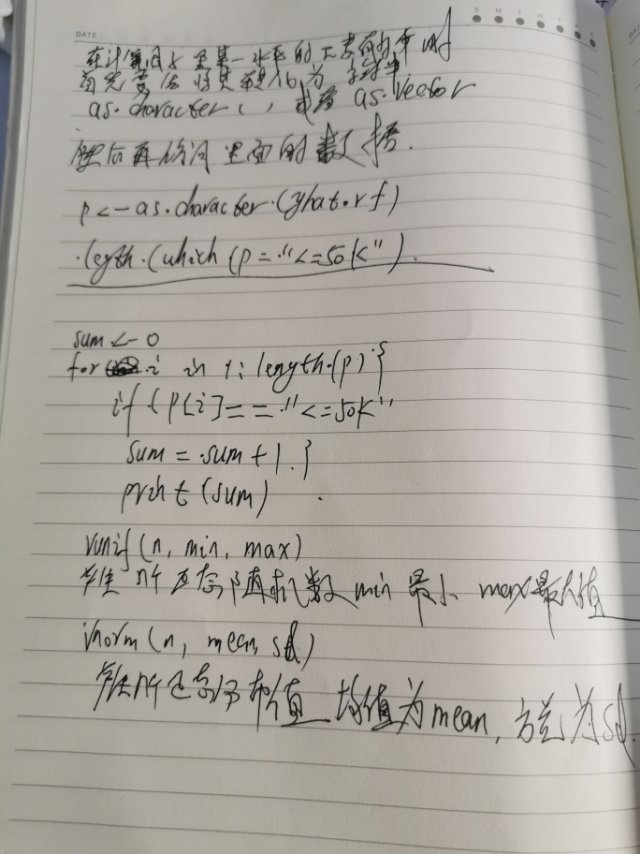 DATE
S M T W T F S
在计算因子里某一水平的元素的个时
首先要将其转化为字符串
as.character(), 或者 as.vector
然后再访问里面的数据.
p<-as.character.(yhat.rf)
.legth.(which(p="<=50k").
sum<-0
for i in 1:length.(p).{
if (p[i]=="<=50k"
sum=.sum+1.}
print(sum)
runif(n,min,max)
n个 随机数 min 最小 max最大值
rnorm(n, mean, sd)
n个正态 值 均值为mean,方差为sd.